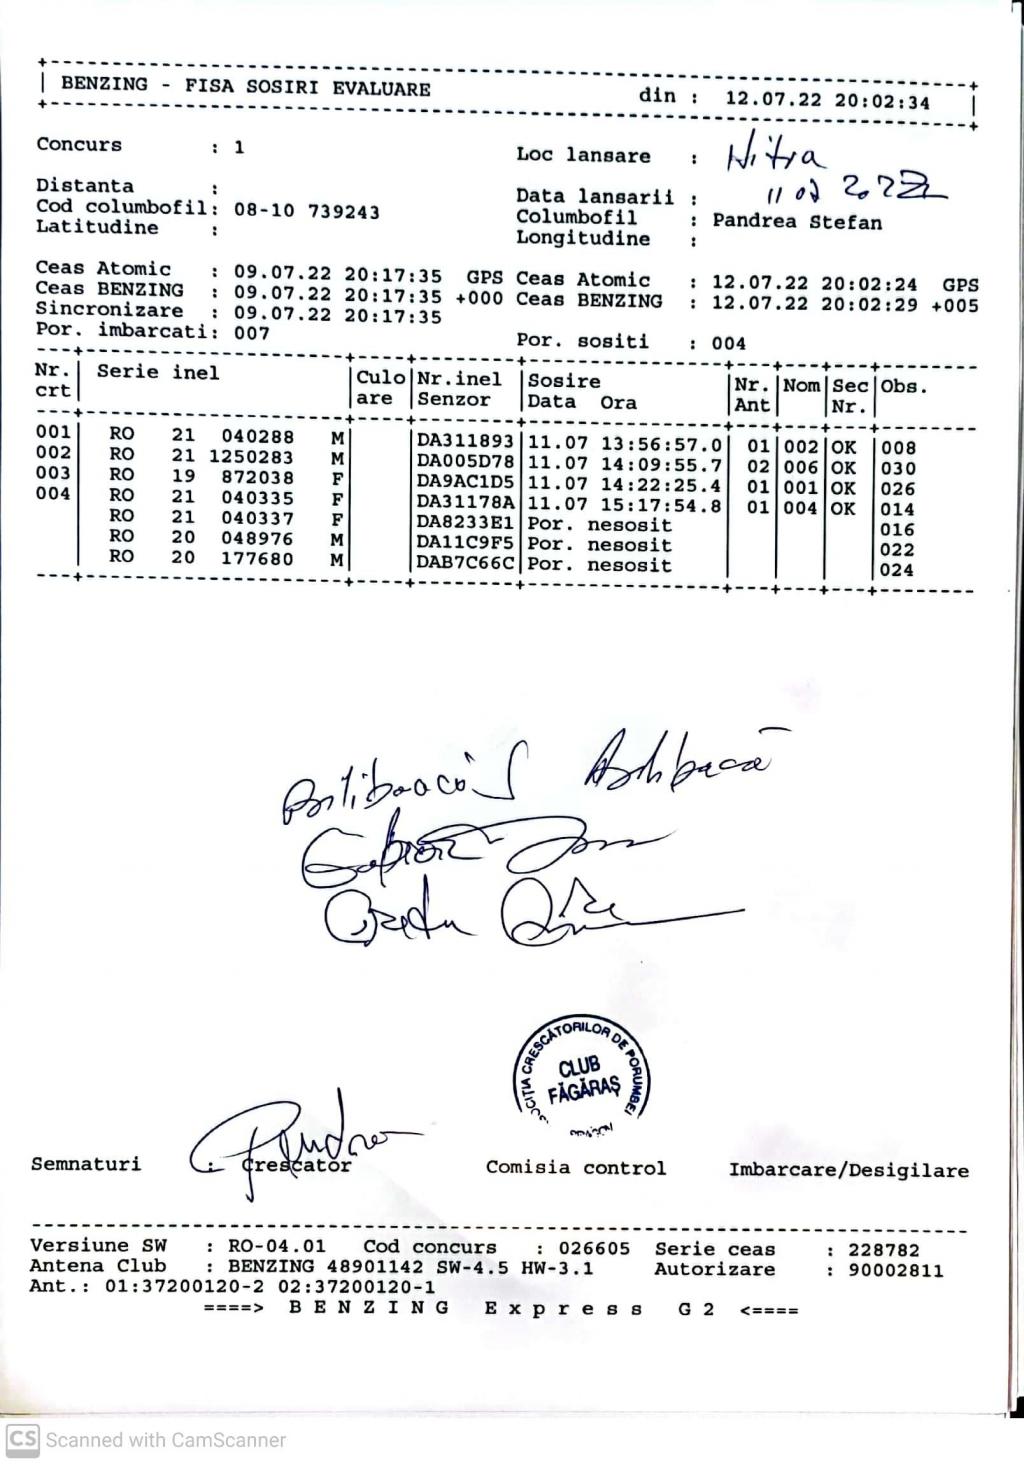 BENZING - FISA SOSIRI EVALUARE din : 12.07.22 20:02:34
Concurs : 1 Loc lansare : Nitra
Distanta : Data lansarii : 11 07 2022
Cod columbofil: 08-10 739243 Columbofil : Pandrea Stefan
Latitudine : Longitudine :
Ceas Atomic : 09.07.22 20:17:35 GPS Ceas Atomic : 12.07.22 20:02:24 GPS
Ceas BENZING : 09.07.22 20:17:35 +000 Ceas BENZING : 12.07.22 20:02:29 +005
Sincronizare : 09.07.22 20:17:35
Por. imbarcati: 007 Por. sositi : 004
Nr. Serie inel Culo Nr.inel Sosire Nr. Nom Sec Obs.
crt are Senzor Data Ora Ant Nr.
001 RO 21 040288 M DA311893 11.07 13:56:57.0 01 002 OK 008
002 RO 21 1250283 M DA005D78 11.07 14:09:55.7 02 006 OK 030
003 RO 19 872038 F DA9AC1D5 11.07 14:22:25.4 01 001 OK 026
004 RO 21 040335 F DA31178A 11.07 15:17:54.8 01 004 OK 014
RO 21 040337 F DA8233E1 Por. nesosit 016
RO 20 048976 M DA11C9F5 Por. nesosit 022
RO 20 177680 M DAB7C66C Por. nesosit 024
CRESCĂTORILOR DE PORUMBEI
CLUB
FĂGĂRAȘ
Pandrea
Semnaturi : Crescator Comisia control Imbarcare/Desigilare
Versiune SW : RO-04.01 Cod concurs : 026605 Serie ceas : 228782
Antena Club : BENZING 48901142 SW-4.5 HW-3.1 Autorizare : 90002811
Ant.: 01:37200120-2 02:37200120-1
====> B E N Z I N G E x p r e s s G 2 <====
CS Scanned with CamScanner